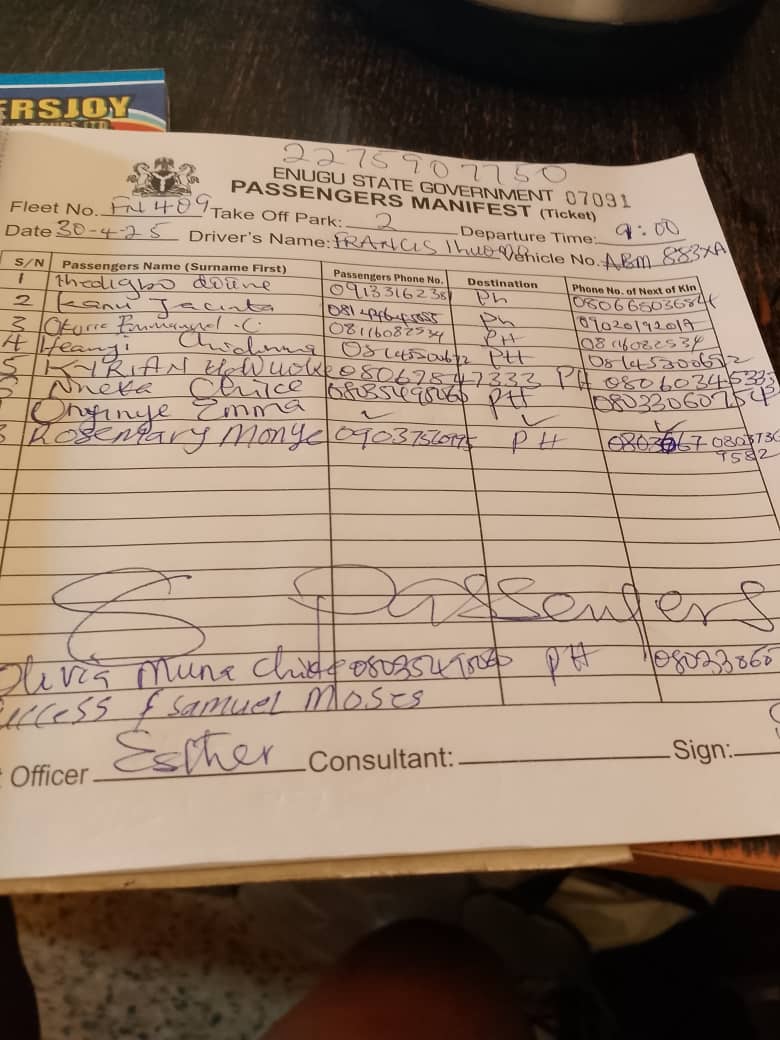 ERSJOY
2275907750
ENUGU STATE GOVERNMENT 07091
PASSENGERS MANIFEST (Ticket)
Fleet No. FN 409 Take Off Park: 2 Departure Time: 9:00
Date 30-4-25 Driver's Name: FRANCIS Vehicle No. ABM 883XA
S/N Passengers Name (Surname First) Passengers Phone No. Destination Phone No. of Next of Kin
1 09133162381 Ph
2 Kanu Jacinta Ph 09020192019
3 Okorie Emmanuel .C. 08116082534 PH 08116082534
4 Ifeanyi 08145300612 PH 08145300652
5 KYRIAN 08067847333 PH 08060345333
Nneka Chike 08035498060 PH
Onyinye Emma ✓ ✓ ✓
8 Rosemary Monye PH
9582
8 Passengers
Olivia Muna Chike 08035498060 PH 0803386
success & Samuel Moses
Officer Esther Consultant: Sign: